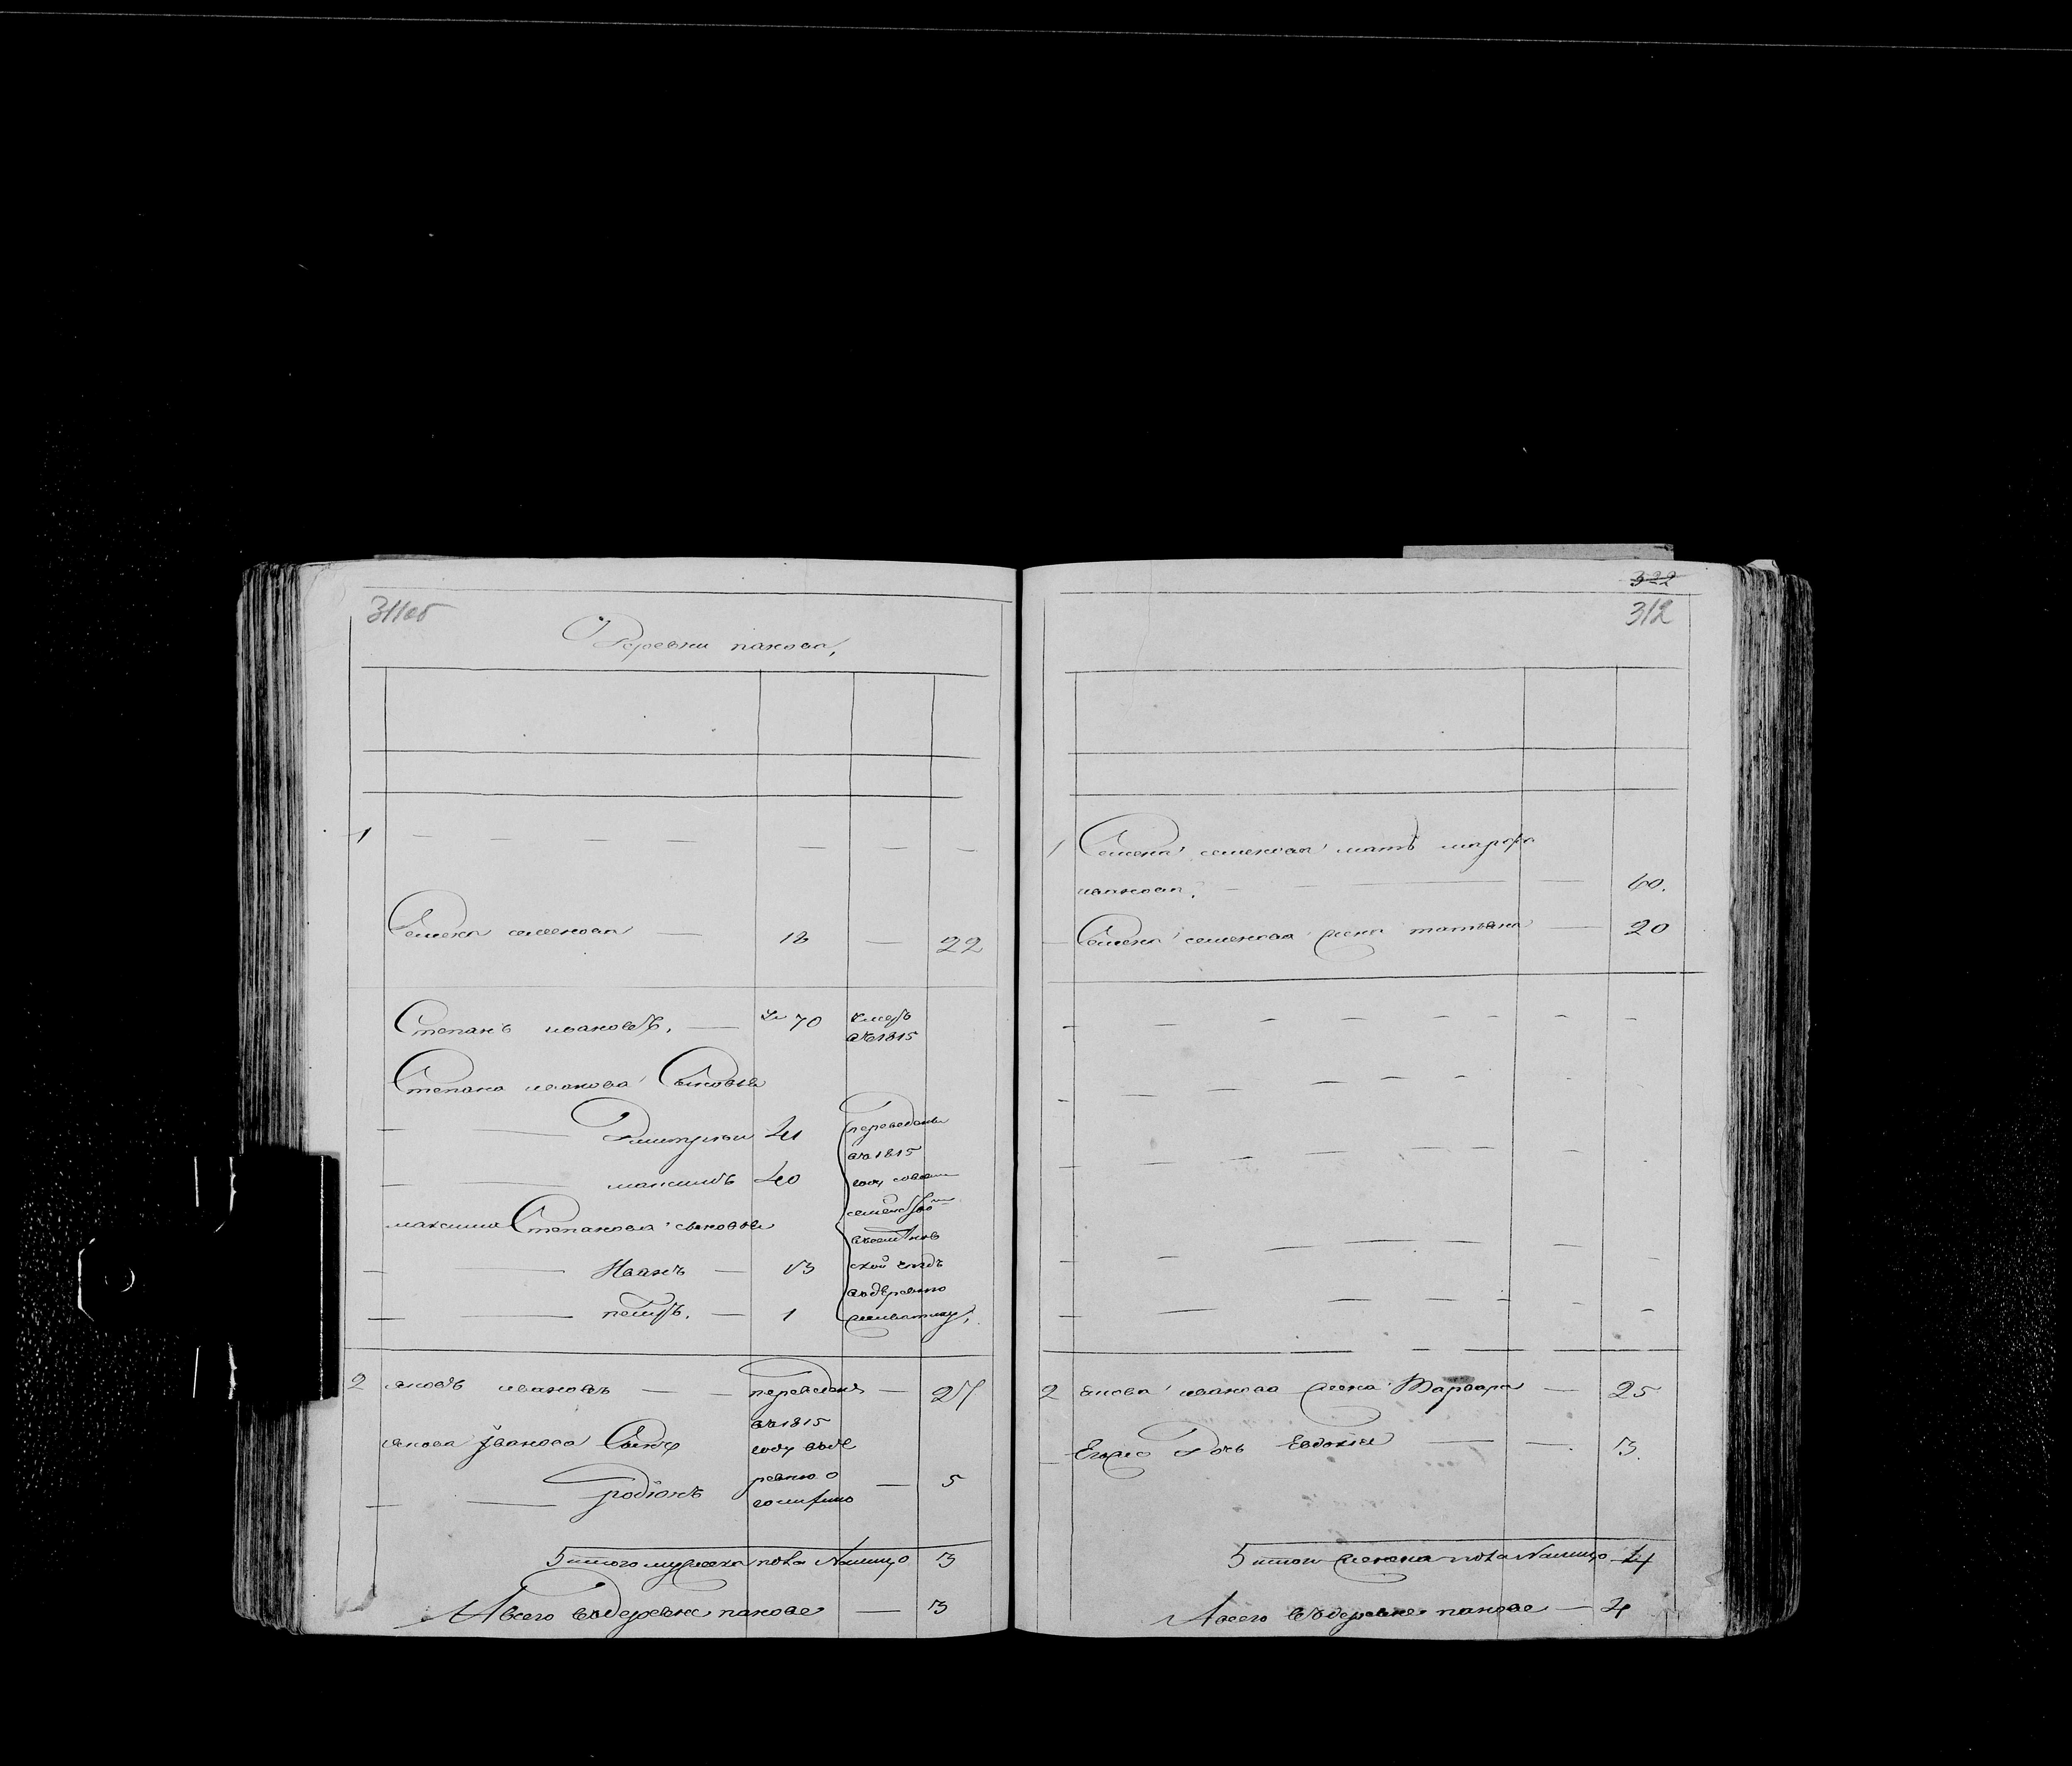 311об
Деревни панова,
1 — — — — — — —
Семенъ семеновъ — 18 — 22
Степанъ ивановъ. — 70 умеръ
въ 1815
Степана иванова Сыновья
— — Дмитрии 41 переведены
въ 1815
— — максимъ 40 году
максима Степанова сыновья
— — Иванъ — 13 ской уездъ
въ деревню
— — петръ. — 1
2 яковъ ивановъ — — переведенъ — 27
въ 1815
якова Иванова Сынъ году въ де
ревню
— — родионъ — 5
5 итого мужеска пола Налицо 3
А всего въ деревне панове — 3
322
312
1 Семена семенова мать марфа
иванова. — — — 60.
— Семена семенова жена татьяна — 20
2 якова иванова жена Варвара — 25
— Егоже Дочь Евдокия — — 3.
5 итого женска пола Налицо 4
А всего въ деревне панове — 4